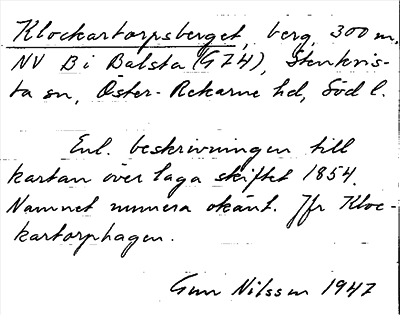 Klockartorpsberget, berg, 300 m.
NV B i Balsta (G74), Stenkvis-
ta sn, Öster-Rekarne hd, Söd l.
Enl. beskrivningen till
kartan över laga skiftet 1854.
Namnet numera okänt. Jfr Kloc-
kartorphagen.
Gun Nilsson 1947